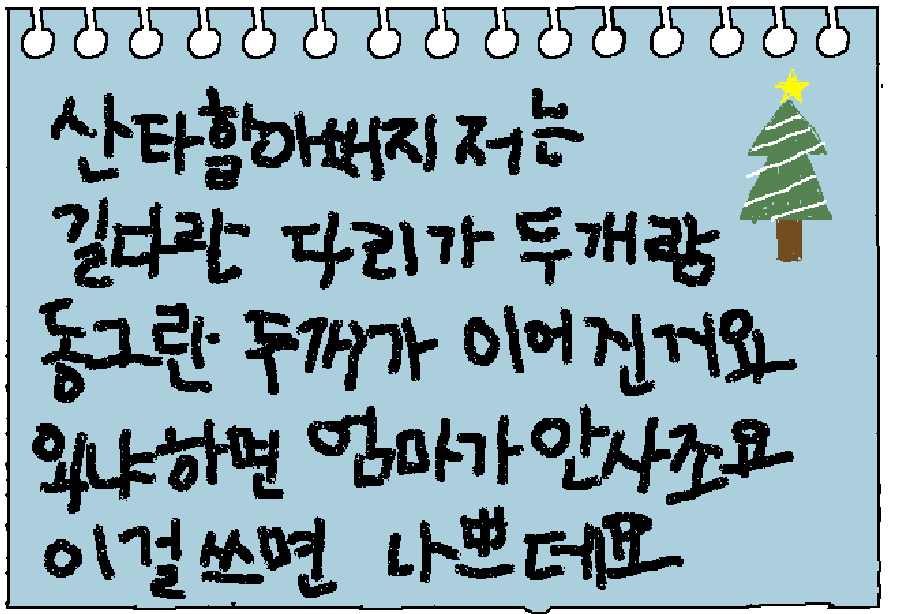 산타할아버지 저는
길다란 다리가 두개랑
동그란 두개가 이어진거요
왜냐하면 엄마가 안사조요
이걸쓰면 나쁘데요